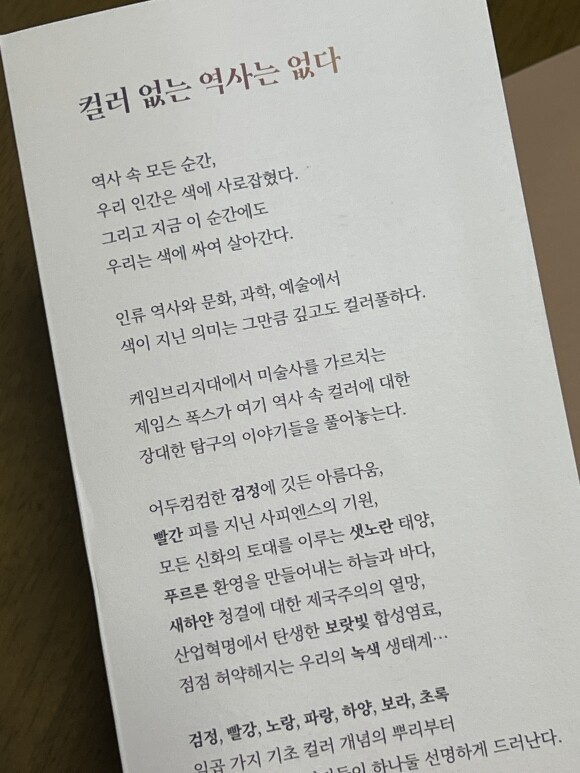 컬러 없는 역사는 없다
역사 속 모든 순간,
우리 인간은 색에 사로잡혔다.
그리고 지금 이 순간에도
우리는 색에 싸여 살아간다.
인류 역사와 문화, 과학, 예술에서
색이 지닌 의미는 그만큼 깊고도 컬러풀하다.
케임브리지대에서 미술사를 가르치는
제임스 폭스가 여기 역사 속 컬러에 대한
장대한 탐구의 이야기들을 풀어놓는다.
어두컴컴한 검정에 깃든 아름다움,
빨간 피를 지닌 사피엔스의 기원,
모든 신화의 토대를 이루는 샛노란 태양,
푸르른 환영을 만들어내는 하늘과 바다,
새하얀 청결에 대한 제국주의의 열망,
산업혁명에서 탄생한 보랏빛 합성염료,
점점 허약해지는 우리의 녹색 생태계…
검정, 빨강, 노랑, 파랑, 하양, 보라, 초록
일곱 가지 기초 컬러 개념의 뿌리부터
하나둘 선명하게 드러난다.